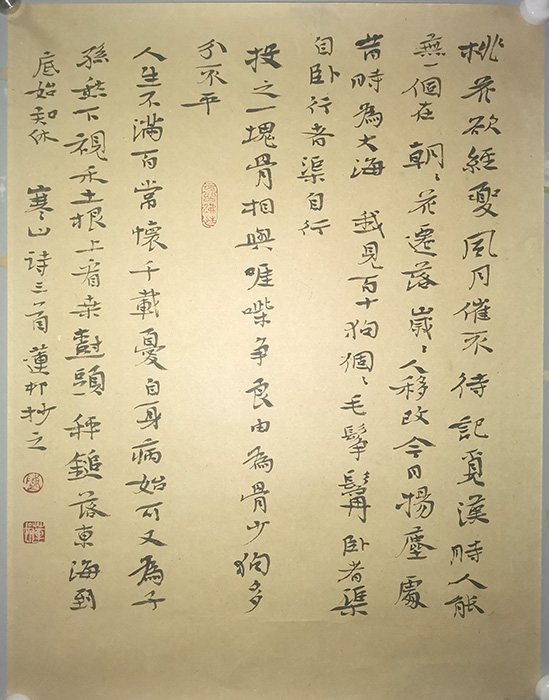 桃花欲經夏風月催不待記覓漢時人能
無一個在朝〻花遷落歲〻人移改今日揚塵處
昔時為大海 我見百十狗個〻毛鬇鬡卧者渠
自卧行者渠自行
投之一塊骨相與啀喍争良由為骨少狗多
分不平
人生不滿百常懷千載憂自身病始可又為子
孫愁下視禾土根上看桑樹頭秤鎚落東海到
底始知休 寒山诗三首蓮邨抄之